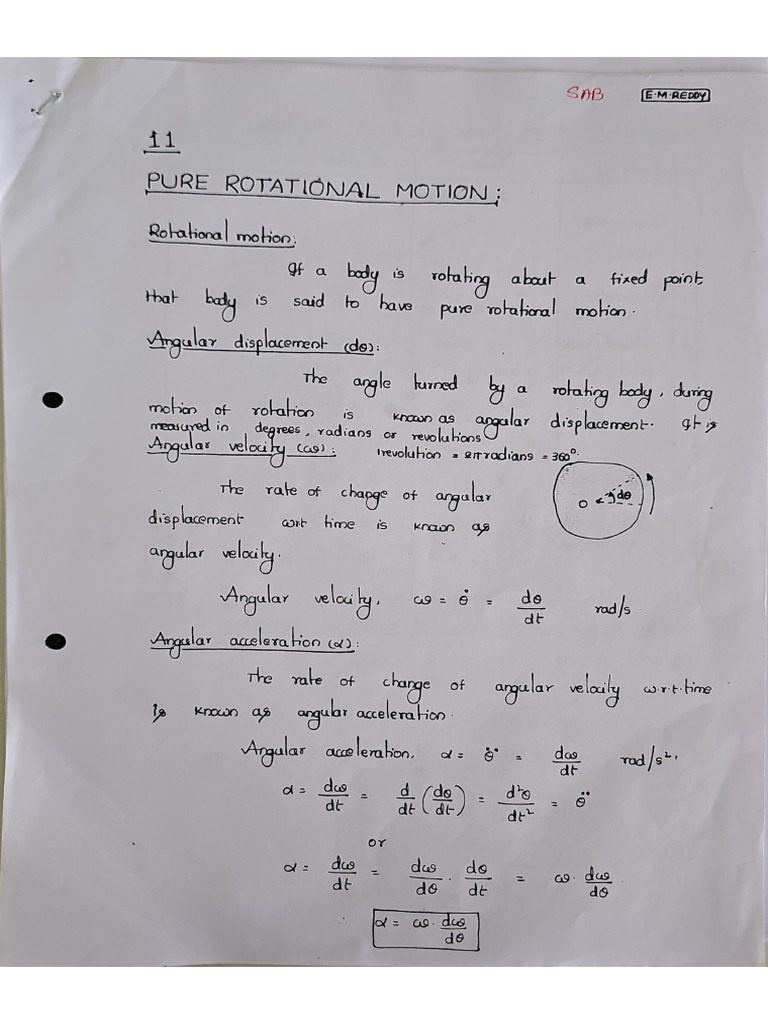 SAB E·M·REDDY
11
PURE ROTATIONAL MOTION:
Rotational motion:
If a body is rotating about a fixed point,
that body is said to have pure rotational motion.
Angular displacement (dθ):
The angle turned by a rotating body, during
motion of rotation is known as angular displacement. It is
measured in degrees, radians or revolutions
1revolution = 2π radians = 360°.
Angular velocity (ω):
The rate of change of angular
displacement wrt time is known as
angular velocity.
O dθ
Angular velocity, ω = θ̇ = dθ/dt rad/s
Angular acceleration (α):
The rate of change of angular velocity w.r.t. time
is known as angular acceleration.
Angular acceleration, α = θ̈ = dω/dt rad/s²,
α = dω/dt = d/dt (dθ/dt) = d²θ/dt² = θ̈
or
α = dω/dt = dω/dθ · dθ/dt = ω · dω/dθ
∴ α = ω · dω/dθ